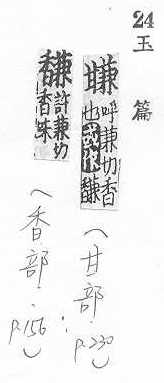 24
玉篇
呼兼切香
也或作馦
(甘部 p.230)
馦許兼切
香味
(香部 p.156)